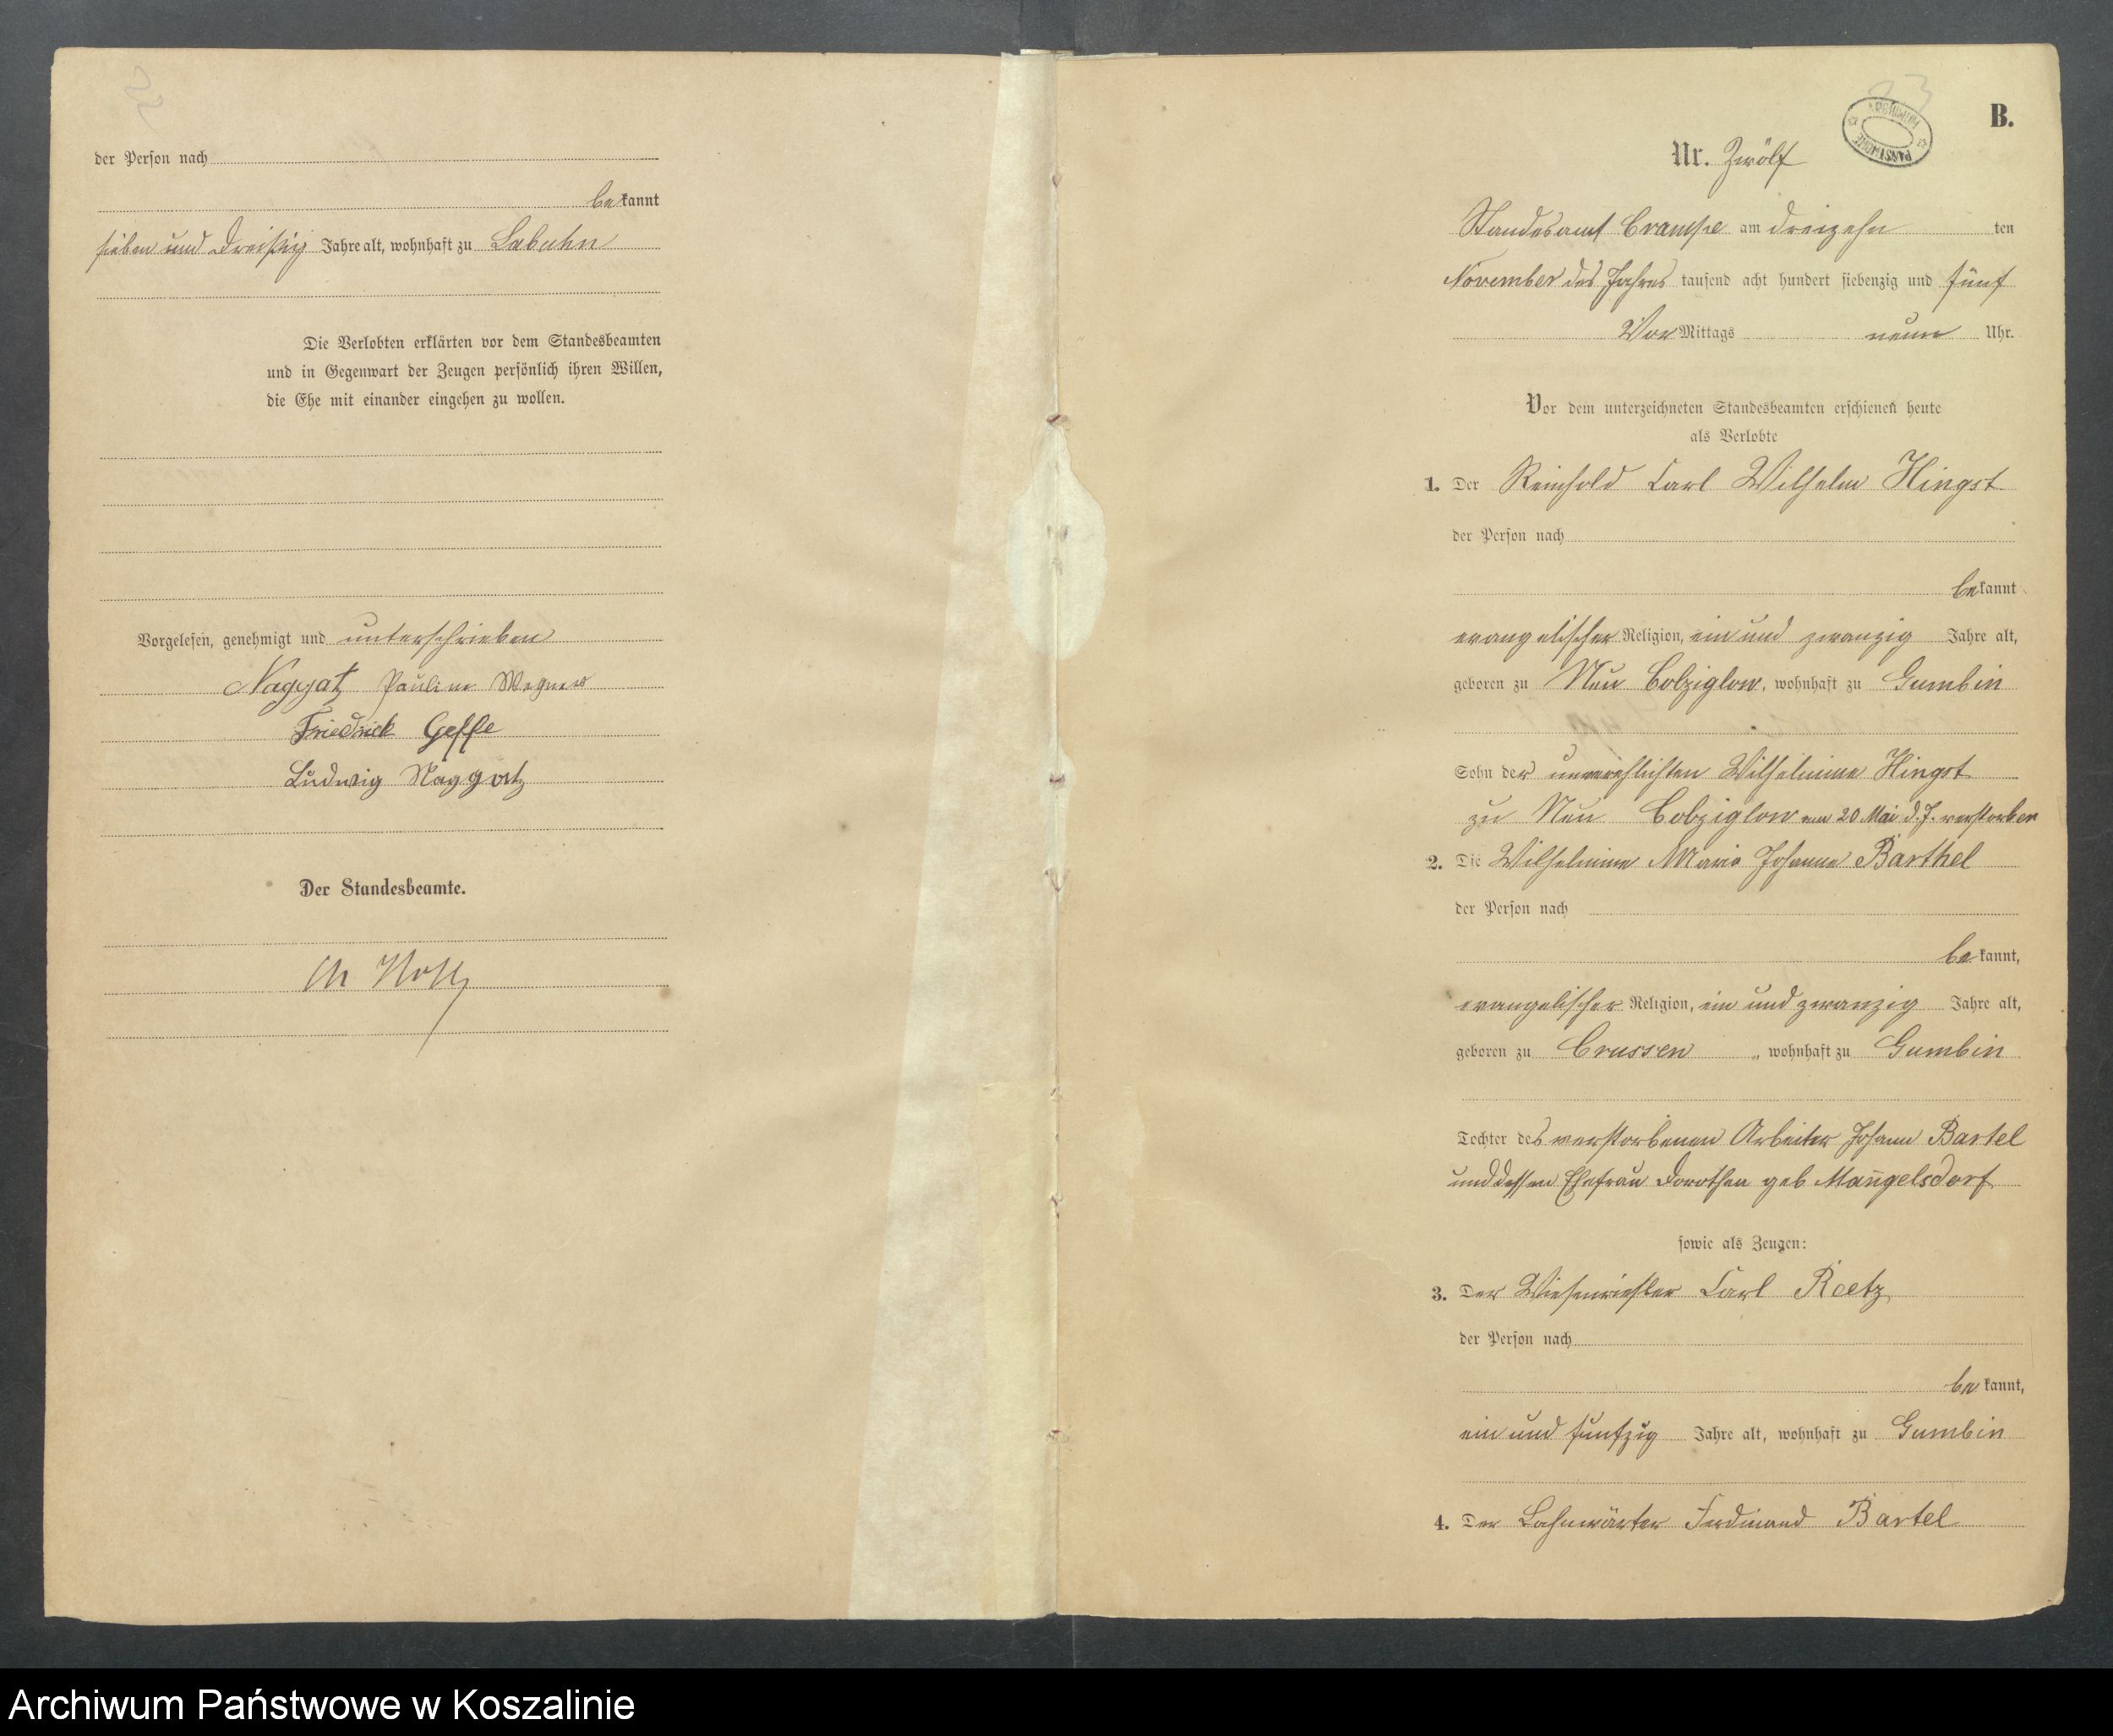 der Person nach
bekannt
sieben und dreißig Jahre alt, wohnhaft zu Labuhn
Die Verlobten erklärten vor dem Standesbeamten
und in Gegenwart der Zeugen persönlich ihren Willen,
die Ehe mit einander eingehen zu wollen.
Vorgelesen, genehmigt und unterschrieben
Naggatz Pauline Wegner
Friedrick Geffke
Ludwig Naggatz
Der Standesbeamte.
B.
Nr. Zwölf
Standesamt Crampe am dreizehn ten
November des Jahres tausend acht hundert siebenzig und fünf
Vor Mittags neun Uhr.
Vor dem unterzeichneten Standesbeamten erschienen heute
als Verlobte
1. Der Reinhold Carl Wilhelm Hingst
der Person nach
bekannt
evangelischer Religion, ein und zwanzig Jahre alt,
geboren zu Neu Colziglow, wohnhaft zu Gumbin
Sohn der unverehlichten Wilhelmine Hingst
zu Neu Colziglow am 20 Mai d. J. verstorben
2. Die Wilhelmine Marie Johanne Barthel
der Person nach
bekannt,
evangelischer Religion, ein und zwanzig Jahre alt,
geboren zu Crussen „ wohnhaft zu Gumbin
Tochter des verstorbenen Arbeiter Johann Bartel
und dessen Ehefrau Dorothea geb Mangelsdorf
sowie als Zeugen:
3. Der Carl Reetz
der Person nach
bekannt,
ein und funfzig Jahre alt, wohnhaft zu Gumbin
4. Der Ferdinand Bartel
Archiwum Państwowe w Koszalinie